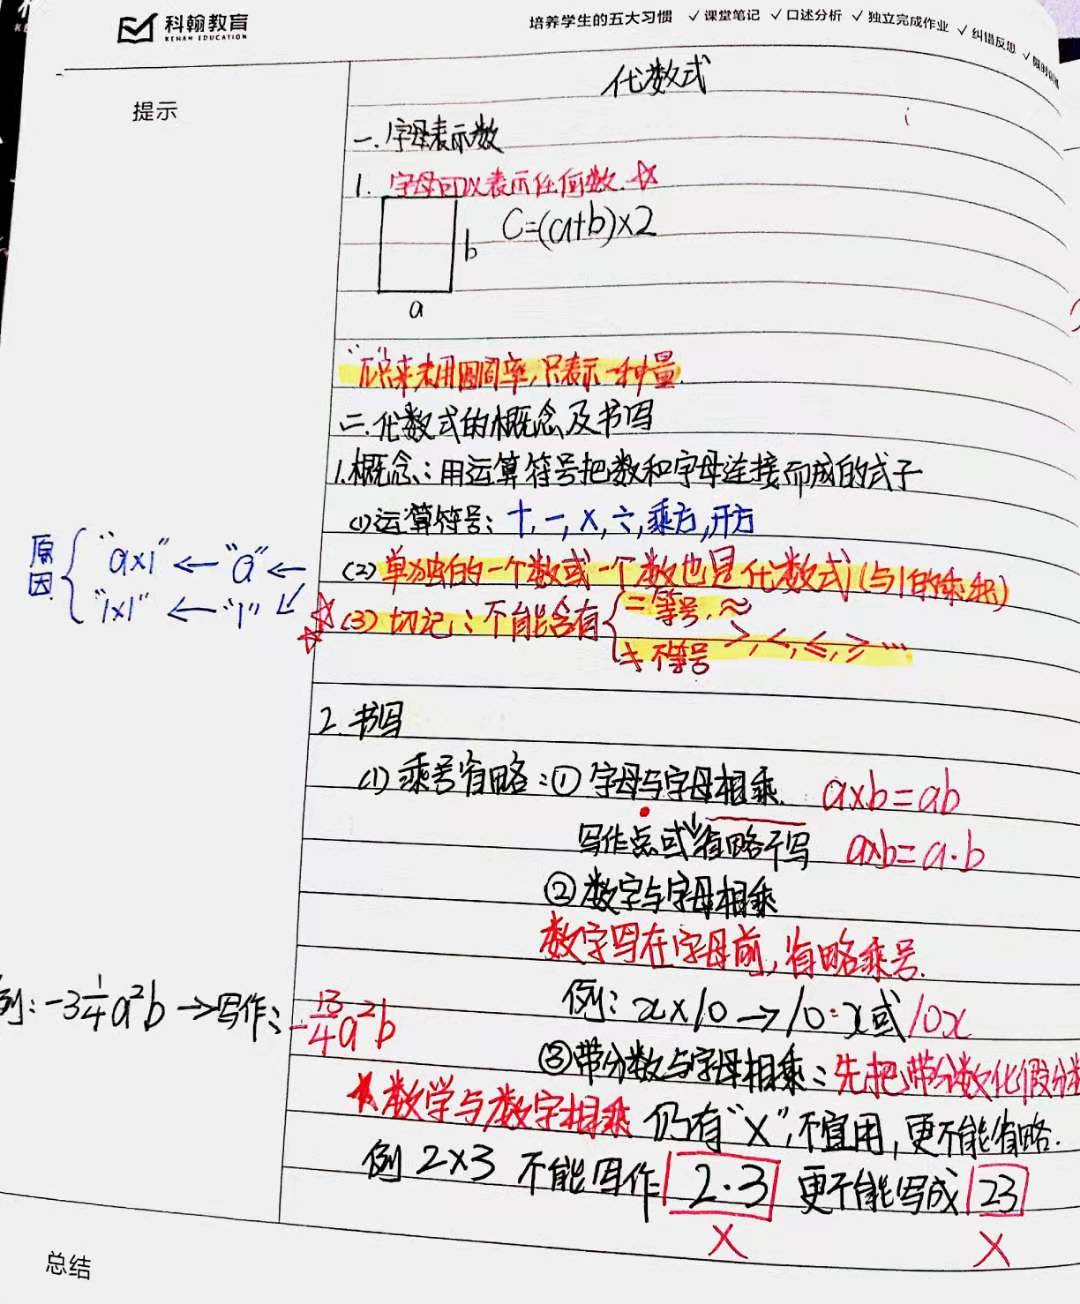 科翰教育
KEHAN EDUCATION
培养学生的五大习惯 ✓课堂笔记 ✓口述分析 ✓独立完成作业 ✓纠错反思
提示
代数式
一.字母表示数
1. 字母可以表示任何数.☆
b C=(a+b)×2
a
用圆周率,只表示一种量.
二.代数式的概念及书写
1.概念:用运算符号把数和字母连接而成的式子
(1)运算符号:+,-,×,÷,乘方,开方
(2)单独的一个数或一个数也是代数式(与1的乘积)
原因{"a×1"←"a"←
"1×1"←"1"
☆(3)切记:不能含有{=等号.≈
≠不等号 >,<,≤,≥…
2.书写
(1)乘号省略:①字母与字母相乘. a×b=ab
写作点或省略不写 a×b=a·b
②数字与字母相乘
数字写在字母前,省略乘号.
例:x×10→10·x或10x
例:-3\frac{1}{4}a²b→写作:-\frac{13}{4}a²b
③带分数与字母相乘:先把带分数化假分数
★数学与数字相乘 仍有"×",不宜用,更不能省略.
例 2×3 不能写作 2·3 更不能写成 23
× ×
总结